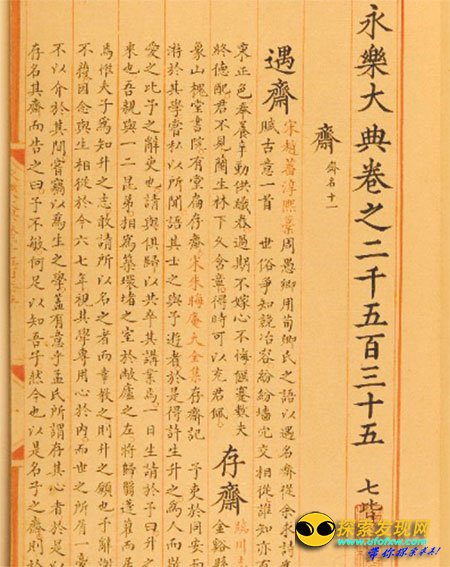 永樂大典卷之二千五百三十五 七皆
齋 齋名十一
遇齋 宋趙蕃淳熙藁周愚卿用荀卿氏之語以遇名齋從余求詩為
賦古意一首 世俗爭知競冶容紛紛墻穴交相從誰知亦有
東正色奉養辛勤供織舂過期不嫁心不悔偃蹇數夫
終德配君不見蘭生林下久含章得時可以充君佩
存齋 臨川志 金谿縣
象山槐堂書院有堂扁存齋宋朱晦庵大全集存齋記 予吏於同安而
游於其學嘗私以所聞語其士之與予遊者於是得許生升之為人而與
愛之比予之辭吏也請與俱歸以共卒其講業焉一日生請於予曰升之
來也吾親與一二昆弟相為築環堵之室於敝廬之左將歸翳蓬藋而
焉惟夫子為知升之志敢請所以名之者而幸教之則升之願也予辭謝
不獲因念與生相從於今六七年視其學專用心於內而世之所屑一毫
不以介於其間嘗竊以為生之學蓋有意乎孟氏所謂存其心者於是以
存名其齋而告之曰予不敏何足以知吾子然今也以是名子之齋則於
探索发现网